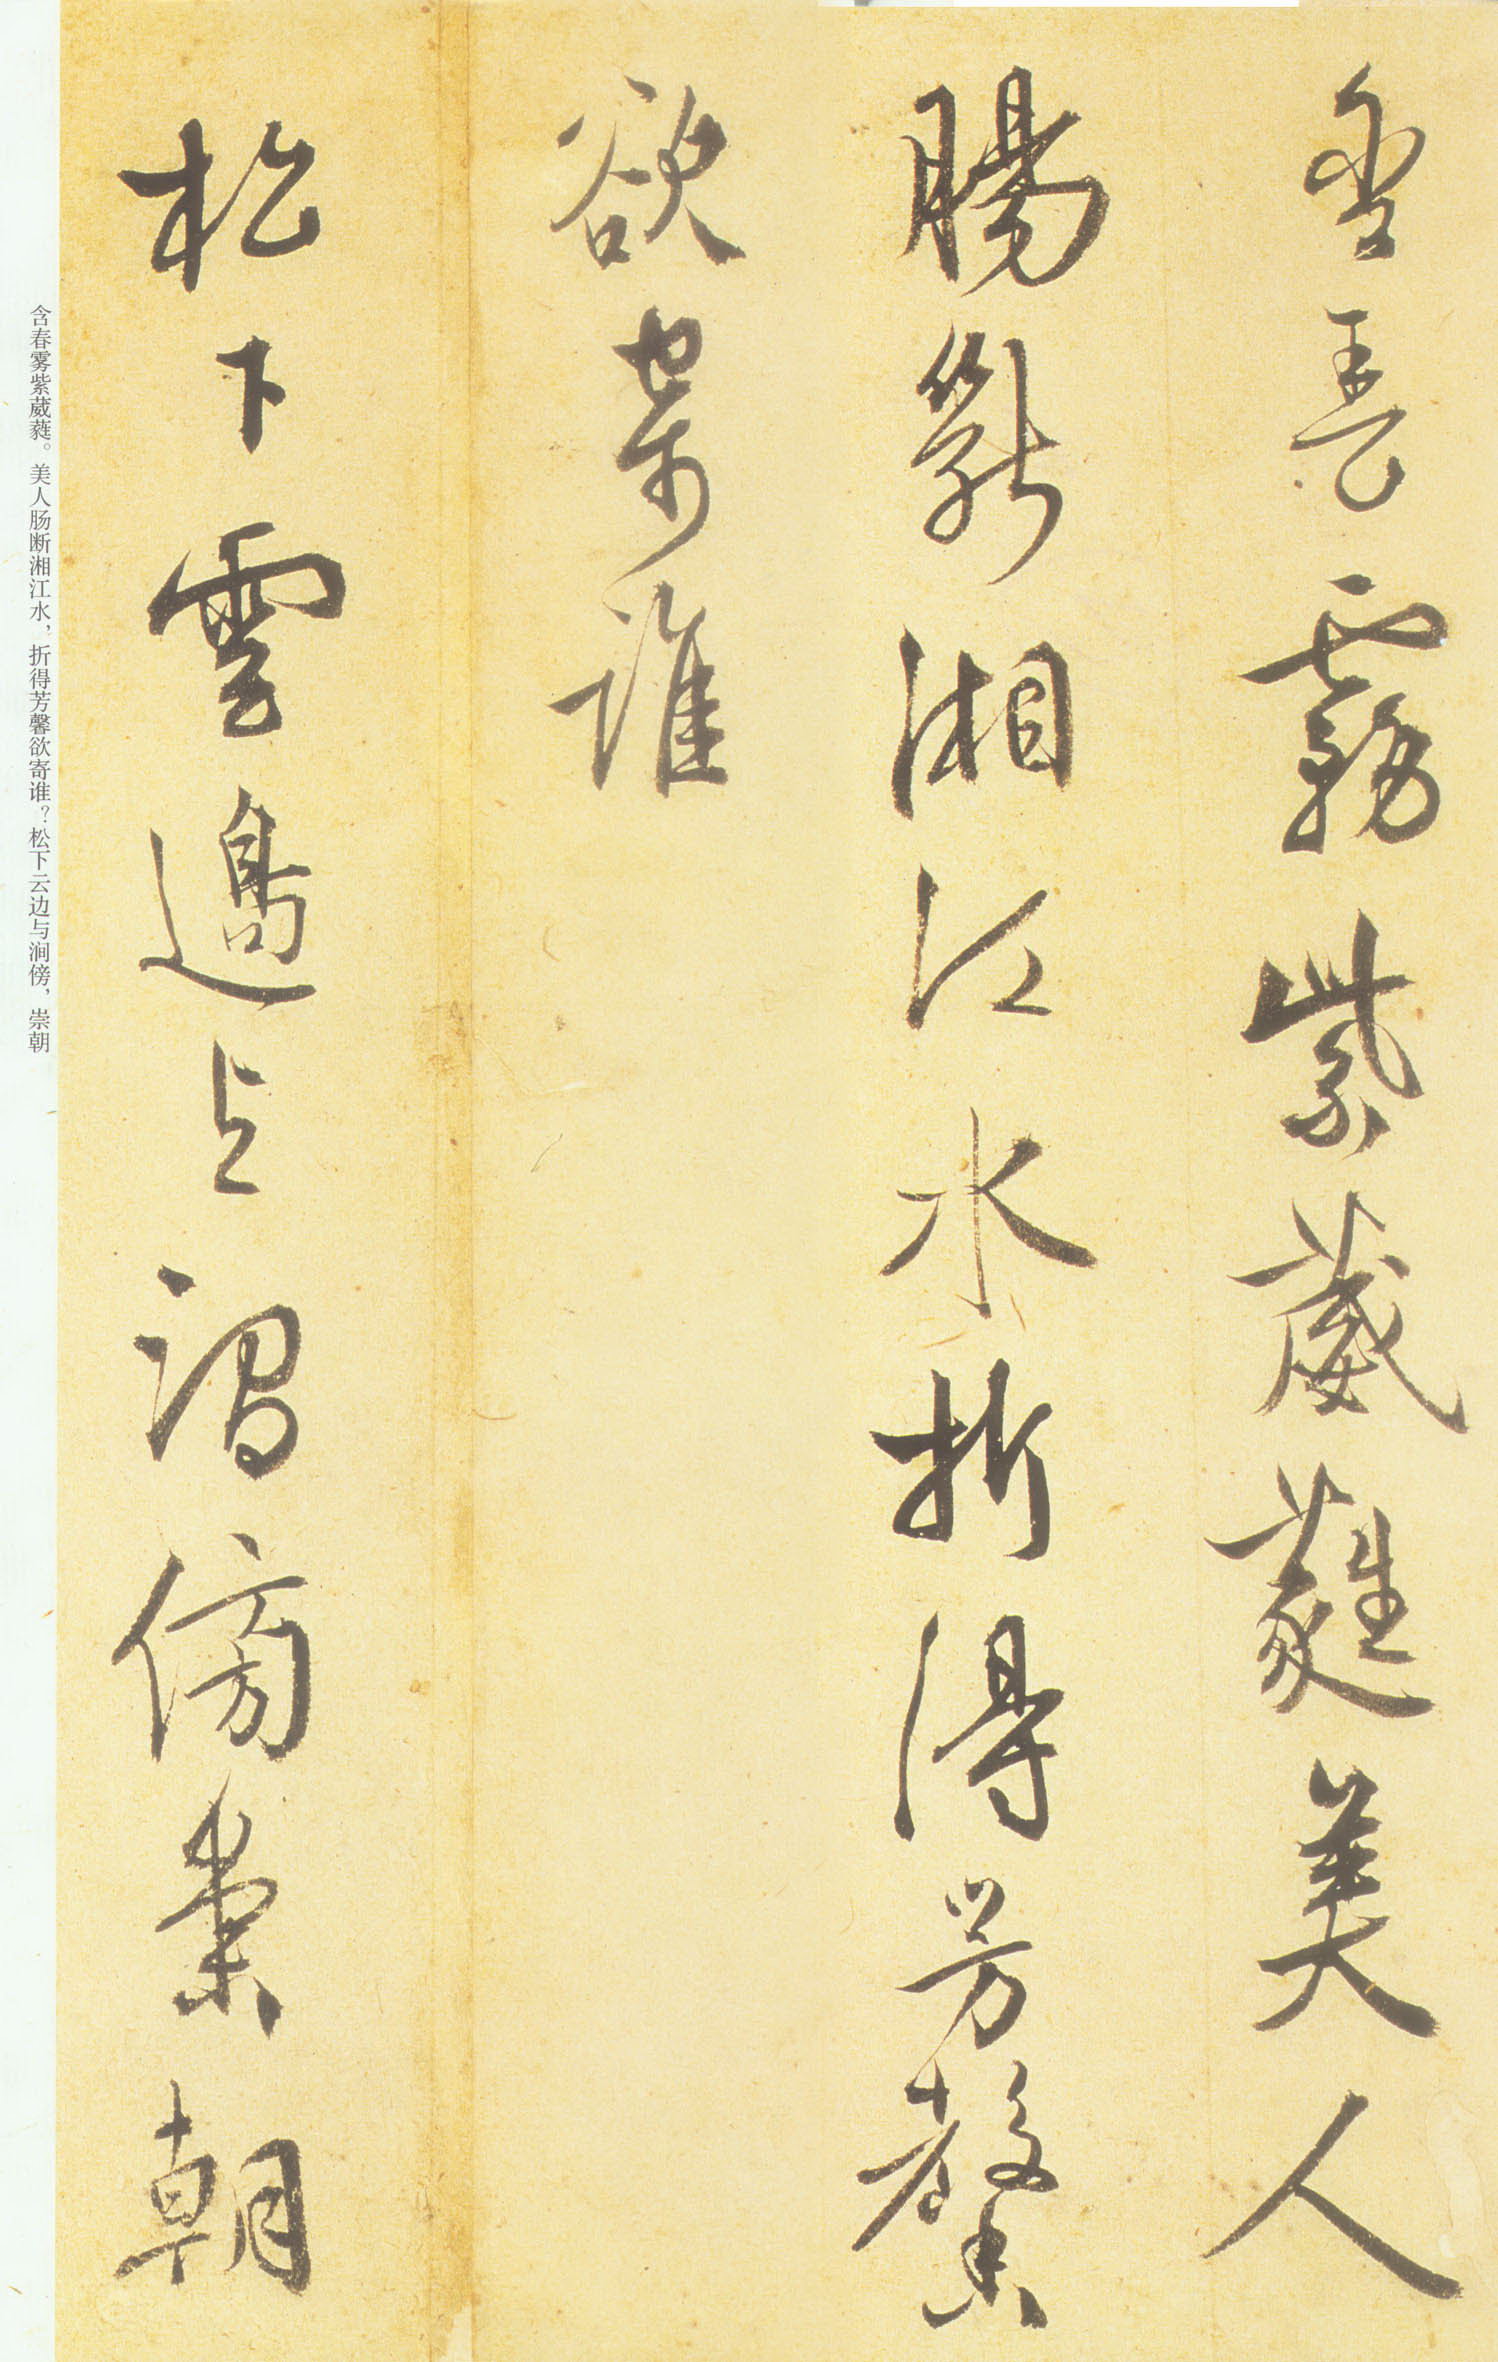 含春霧紫葳蕤美人
腸斷湘江水折得芳馨
欲寄誰
松下雲邊与澗傍崇朝
含春雾紫葳蕤。美人肠断湘江水，折得芳馨欲寄谁？松下云边与涧傍，崇朝